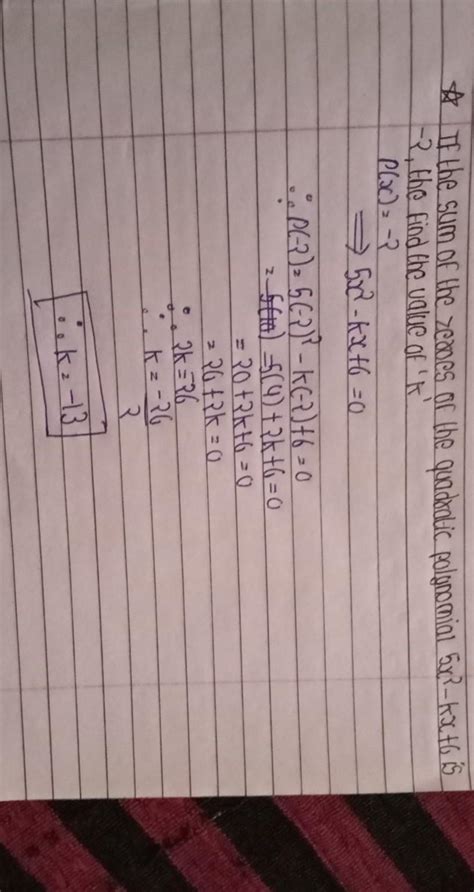 ☆ If the sum of the zeroes of the quadratic polynomial 5x² - kx + 6 is
-2, the find the value of 'k'.
P(x) = -2
⟹ 5x² - kx + 6 = 0
∴ P(-2) = 5(-2)² - k(-2) + 6 = 0
= 5(4) + 2k + 6 = 0
= 20 + 2k + 6 = 0
= 26 + 2k = 0
∴ 2k = 26
∴ k = -26/2
∴ k = -13